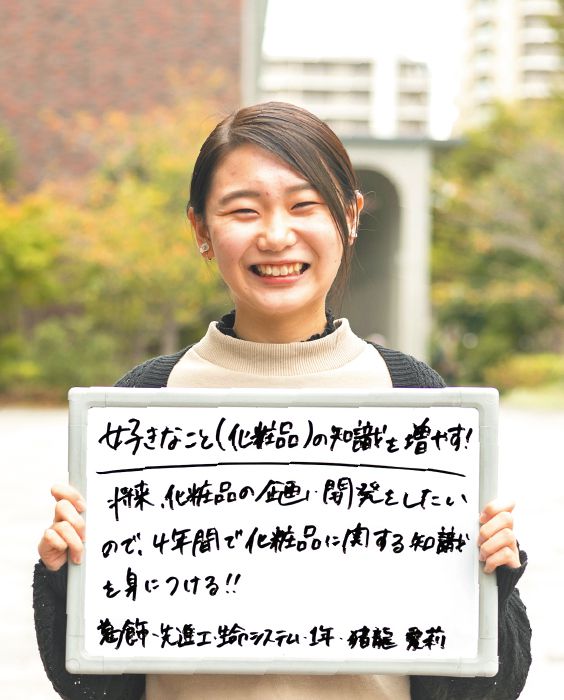 好きなこと(化粧品)の知識を増やす!
将来、化粧品の企画・開発をしたい
ので、4年間で化粧品に関する知識
を身につける!!
葛飾・先進工・生命システム・1年・猪龍 愛莉